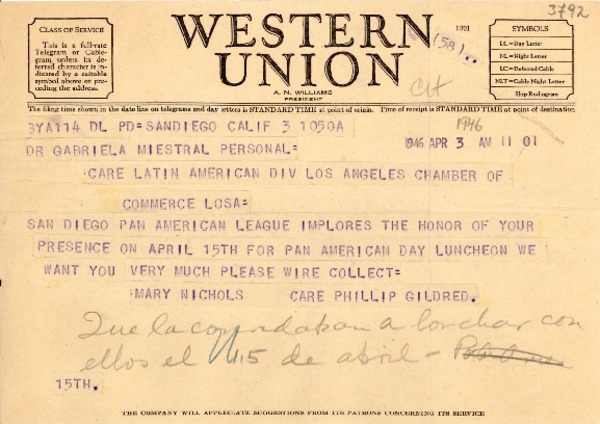 3792
CLASS OF SERVICE
This is a full-rate
Telegram or Cable-
gram unless its de-
ferred character is in-
dicated by a suitable
symbol above or pre-
ceding the address.
WESTERN
UNION
A. N. WILLIAMS
PRESIDENT
1201
(58)
SYMBOLS
DL=Day Letter
NL=Night Letter
LC=Deferred Cable
NLT=Cable Night Letter
Ship Radiogram
The filing time shown in the date line on telegrams and day letters is STANDARD TIME at point of origin. Time of receipt is STANDARD TIME at point of destination
1946
3YA114 DL PD=SANDIEGO CALIF 3 1050A
1946 APR 3 AM 11 01
DR GABRIELA MIESTRAL PERSONAL=
CARE LATIN AMERICAN DIV LOS ANGELES CHAMBER OF
COMMERCE LOSA=
SAN DIEGO PAN AMERICAN LEAGUE IMPLORES THE HONOR OF YOUR
PRESENCE ON APRIL 15TH FOR PAN AMERICAN DAY LUNCHEON WE
WANT YOU VERY MUCH PLEASE WIRE COLLECT=
MARY NICHOLS CARE PHILLIP GILDRED.
Que la a con
ellos el 15 de abril -
15TH.
THE COMPANY WILL APPRECIATE SUGGESTIONS FROM ITS PATRONS CONCERNING ITS SERVICE